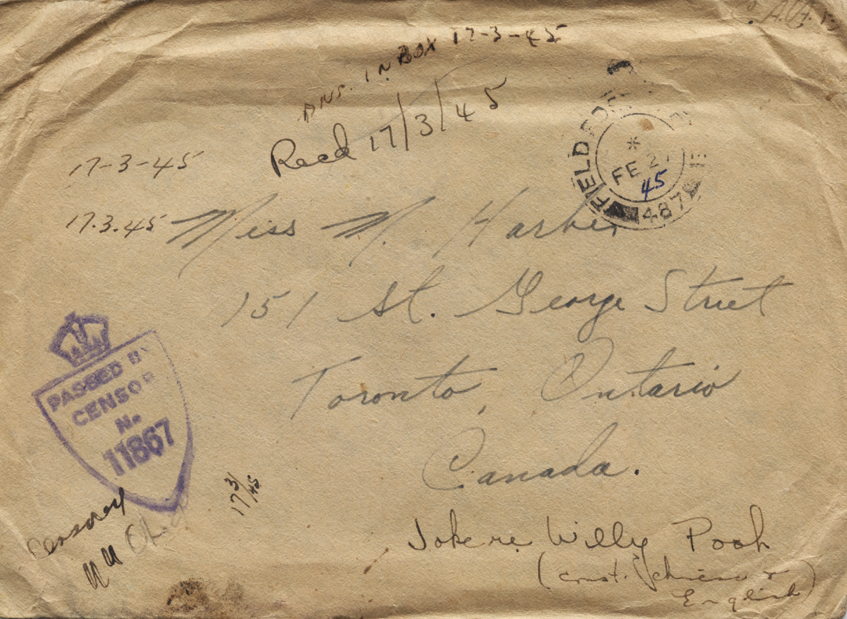 ANS. IN BOX 17-3-45
Recd 17/3/45
17-3-45
17.3.45
FIELD
FE 27
45
487
Miss M. Harber
151 St. George Street
Toronto, Ontario
Canada.
PASSED BY
CENSOR
No
11867
17/3/45
Censored
Joke re. Willy Pooh
English)